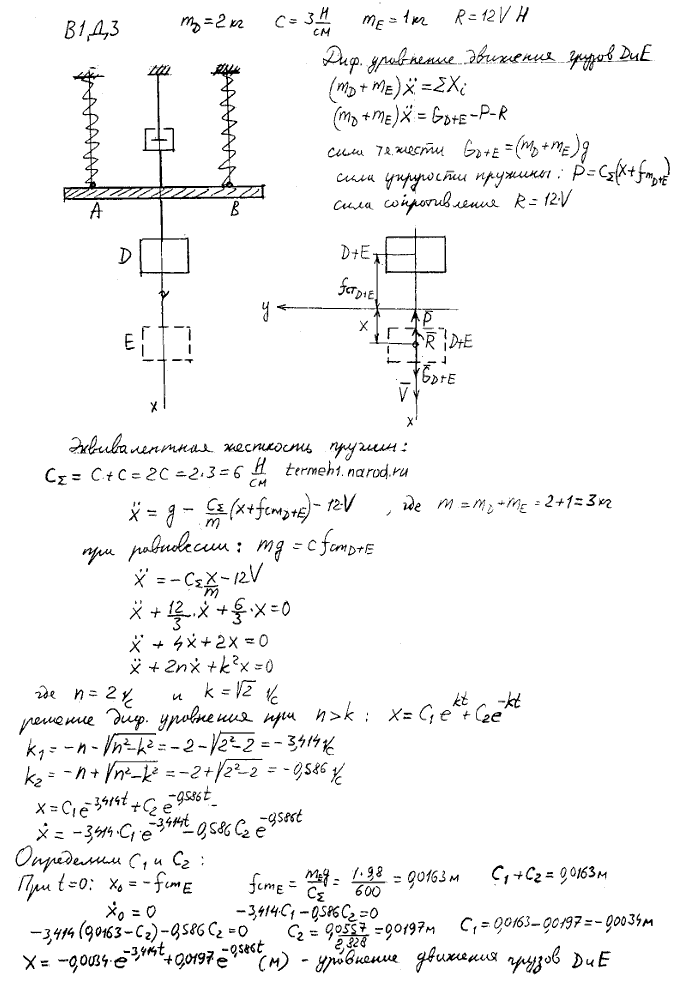 В1,Д,3 m_D = 2 кг C = 3 Н/см m_E = 1 кг R = 12V Н
Диф. уровнение движения грузов D и E
(m_D + m_E) ẍ = ΣX_i
(m_D + m_E) ẍ = G_D+E - P - R
сила тяжести G_D+E = (m_D + m_E) g
сила упругости пружины: P = C_Σ (X + f_ст_D+E)
сила сопротивления R = 12·V
A B
D
E
x
D+E
f_ст_D+E
y
x
P̄
R̄
D+E
Ḡ_D+E
V̄
x
Эквивалентная жесткость пружин:
C_Σ = C + C = 2C = 2·3 = 6 Н/см termeh1.narod.ru
ẍ = g - C_Σ/m (x + f_ст_D+E) - 12·V , где m = m_D + m_E = 2 + 1 = 3 кг
при равновесии: mg = c f_ст_D+E
ẍ = -C_Σ x/m - 12V
ẍ + 12/3 · ẋ + 6/3 · x = 0
ẍ + 4ẋ + 2x = 0
ẍ + 2nẋ + k²x = 0
где n = 2 1/с и k = √2 1/с
решение диф. уровнения при n > k : x = C₁e^kt + C₂e^-kt
k₁ = -n - √(n² - k²) = -2 - √(2² - 2) = -3,414 1/с
k₂ = -n + √(n² - k²) = -2 + √(2² - 2) = -0,586 1/с
x = C₁e^-3,414t + C₂e^-0,586t
ẋ = -3,414·C₁·e^-3,414t - 0,586 C₂ e^-0,586t
Определим C₁ и C₂ :
При t=0: x₀ = -f_ст_E f_ст_E = m_E g/C_Σ = 1·9,8/600 = 0,0163 м C₁ + C₂ = 0,0163 м
ẋ₀ = 0 -3,414·C₁ - 0,586C₂ = 0
-3,414(0,0163 - C₂) - 0,586C₂ = 0 C₂ = 0,0557/2,828 = 0,0197 м C₁ = 0,0163 - 0,0197 = -0,0034 м
X = -0,0034·e^-3,414t + 0,0197e^-0,586t (м) - уровнение движения грузов D и E